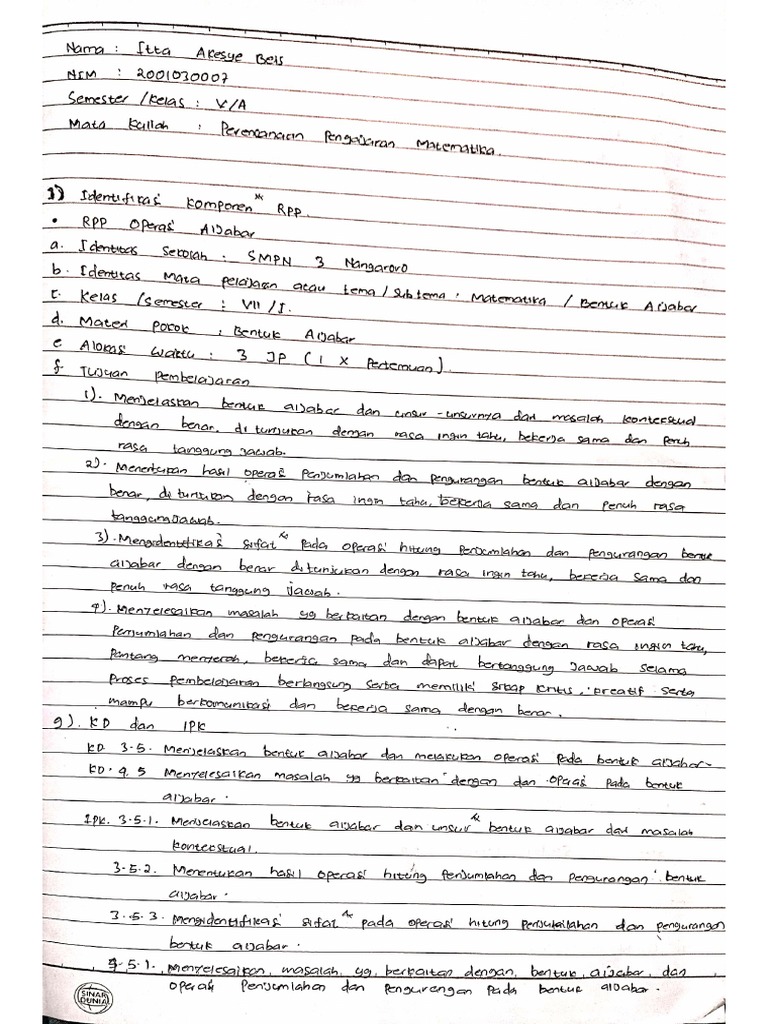 Nama : Itta Akesye Beis
NIM : 2001030007
Semester /Kelas : V/A
Mata Kuliah : Perencanaan Pengajaran Matematika.
1) Identifikasi Komponen " RPP.
• RPP Operasi Aljabar
a. Identitas Sekolah : SMPN 3 Nangaroro
b. Identitas Mata pelajaran atau tema / Subtema : Matematika / Bentuk Aljabar
c. Kelas /Semester : VII /I.
d. Materi Pokok : Bentuk Aljabar
e. Alokasi Waktu : 3 JP ( 1 x Pertemuan).
f. Tujuan Pembelajaran
1). Menjelaskan bentuk aljabar dan unsur -unsurnya dari masalah kontekstual
dengan benar, di tunjukan dengan rasa ingin tahu, bekerja sama dan penuh
rasa tanggung jawab.
2). Menentukan hasil operasi penjumlahan dan pengurangan bentuk aljabar dengan
benar, di tunjukan dengan rasa ingin tahu, bekerja sama dan penuh rasa
tanggung jawab.
3). Mengidentifikasi sifat " pada operasi hitung penjumlahan dan pengurangan bentuk
aljabar dengan benar ditunjukan dengan rasa ingin tahu, bekerja sama dan
penuh rasa tanggung jawab.
4). Menyelesaikan masalah yg berkaitan dengan bentuk aljabar dan operasi
penjumlahan dan pengurangan pada bentuk aljabar dengan rasa ingin tahu,
pantang menyerah, bekerja sama dan dapat bertanggung jawab selama
proses pembelajaran berlangsung serta memiliki sikap kritis, kreatif serta
mampu berkomunikasi dan bekerja sama dengan benar.
g). KD dan IPK
KD 3.5. Menjelaskan bentuk aljabar dan melakukan operasi pada bentuk aljabar.
KD. 4.5 Menyelesaikan masalah yg berkaitan dengan dan operasi pada bentuk
aljabar.
IPK. 3.5.1. Menjelaskan bentuk aljabar dan unsur " bentuk aljabar dari masalah
kontekstual.
3.5.2. Menentukan hasil operasi hitung penjumlahan dan pengurangan bentuk
aljabar.
3.5.3. Mengidentifikasi sifat " pada operasi hitung dan pengurangan
bentuk aljabar.
4.5.1. Menyelesaikan masalah yg berkaitan dengan bentuk aljabar dan
operasi penjumlahan dan pengurangan pada bentuk aljabar.
SINAR
DUNIA